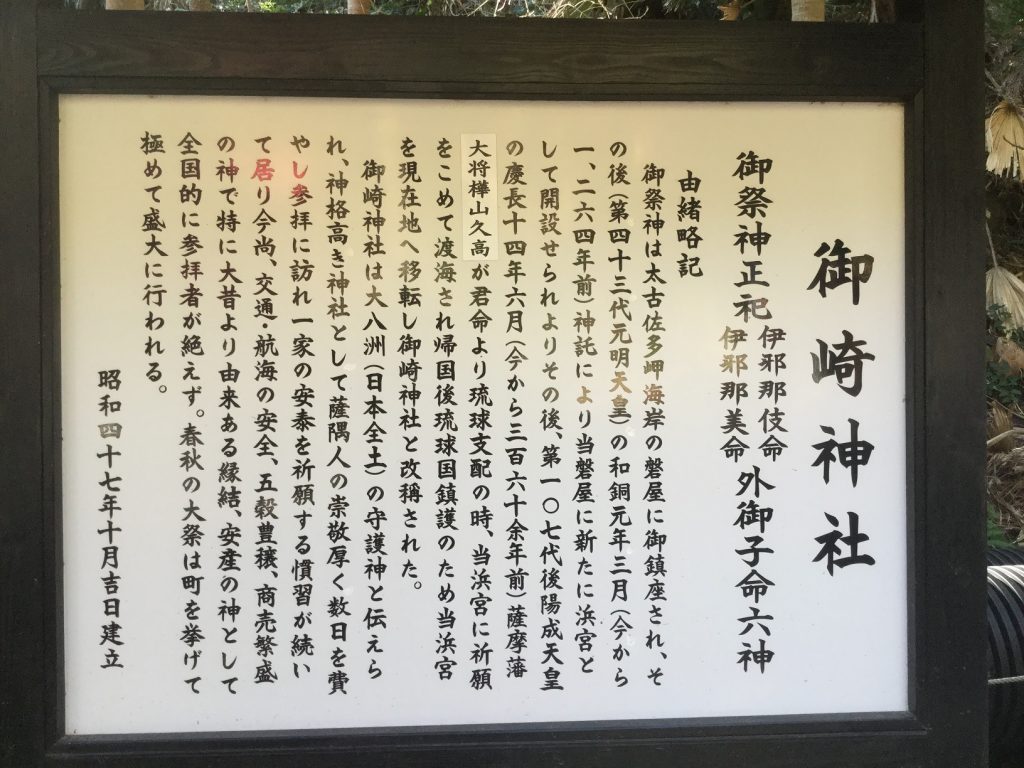 御崎神社
御祭神正祀 伊邪那伎命 伊邪那美命 外御子命六神
由緒略記
御祭神は太古佐多岬海岸の磐屋に御鎮座され、そ
の後(第四十三代元明天皇)の和銅元年三月(今から
一、二六四年前)神託により当磐屋に新たに浜宮と
して開設せられよりその後、第一〇七代後陽成天皇
の慶長十四年六月(今から三百六十余年前)薩摩藩
大将樺山久高が君命より琉球支配の時、当浜宮に祈願
をこめて渡海され帰国後琉球国鎮護のため当浜宮
を現在地へ移転し御崎神社と改稱された。
御崎神社は大八洲(日本全土)の守護神と伝えら
れ、神格高き神社として薩隅人の崇敬厚く数日を費
やし参拝に訪れ一家の安泰を祈願する慣習が続い
て居り今尚、交通・航海の安全、五穀豊穣、商売繁盛
の神で特に大昔より由来ある縁結、安産の神として
全国的に参拝者が絶えず。春秋の大祭は町を挙げて
極めて盛大に行われる。
昭和四十七年十月吉日建立